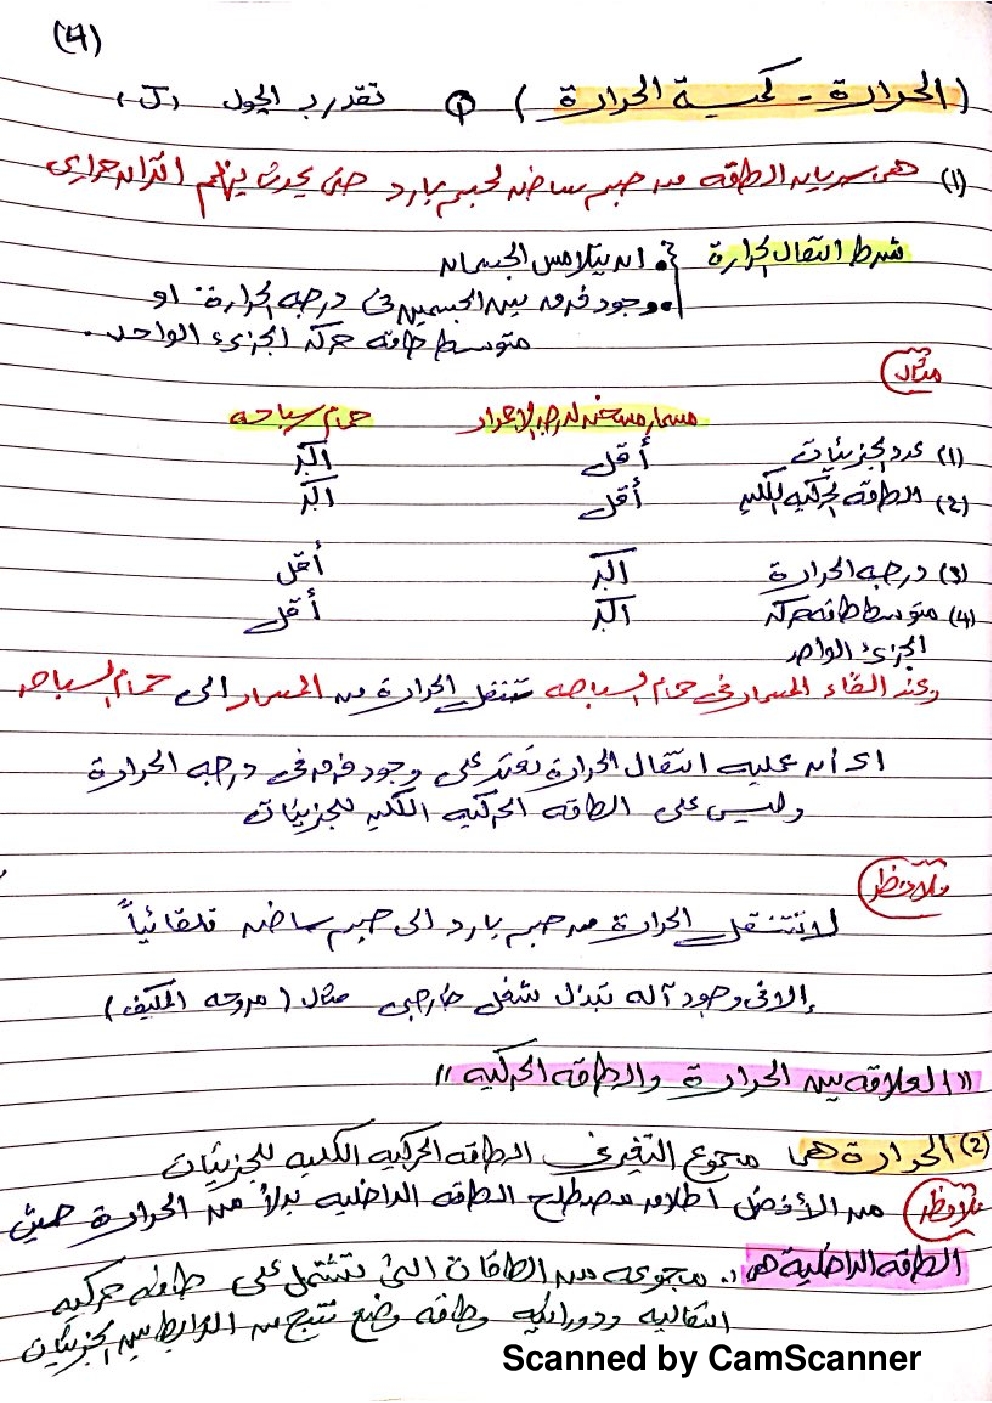 (4)
(الحرارة - كمية الحرارة) Q تقدر بـ الجول (J)
(1) هى سريان الطاقه من جسم ساخن لجسم بارد حتى يحدث بينهم اتزان حرارى
شرط انتقال الحرارة { • ان يتلامس الجسمان
• وجود فرق بين الجسمين فى درجه الحرارة او
متوسط طاقه حركه الجزىء الواحد .
مثال
مسمار مسخن لدرجه الاحمرار حمام سباحه
(1) عدد الجزيئات أقل اكبر
(2) الطاقه الحركيه الكليه أقل اكبر
(3) درجه الحرارة اكبر أقل
(4) متوسط طاقه حركه اكبر أقل
الجزىء الواحد
وعند القاء المسمار فى حمام السباحه تنتقل الحرارة من المسمار الى حمام السباحه
اى أن عمليه انتقال الحرارة تعتمد على وجود فرق فى درجه الحرارة
وليس على الطاقه الحركيه الكليه للجزيئات
ملاحظه
لا تنتقل الحرارة من جسم بارد الى جسم ساخن تلقائياً
إلا فى وجود آله تبذل شغل خارجى مثال (مروحه المكيف)
"العلاقه بين الحرارة والطاقه الحركيه"
(2) الحرارة هى مجموع التغير فى الطاقه الحركيه الكليه للجزيئات
ملاحظه من الأفضل اطلاق مصطلح الطاقه الداخليه بدلاً من الحرارة حيث
الطاقه الداخلية هى : مجموعه من الطاقات التى تشتمل على طاقه حركيه
انتقاليه ودورانيه وطاقه وضع تنتج من الروابط بين الجزيئات
Scanned by CamScanner